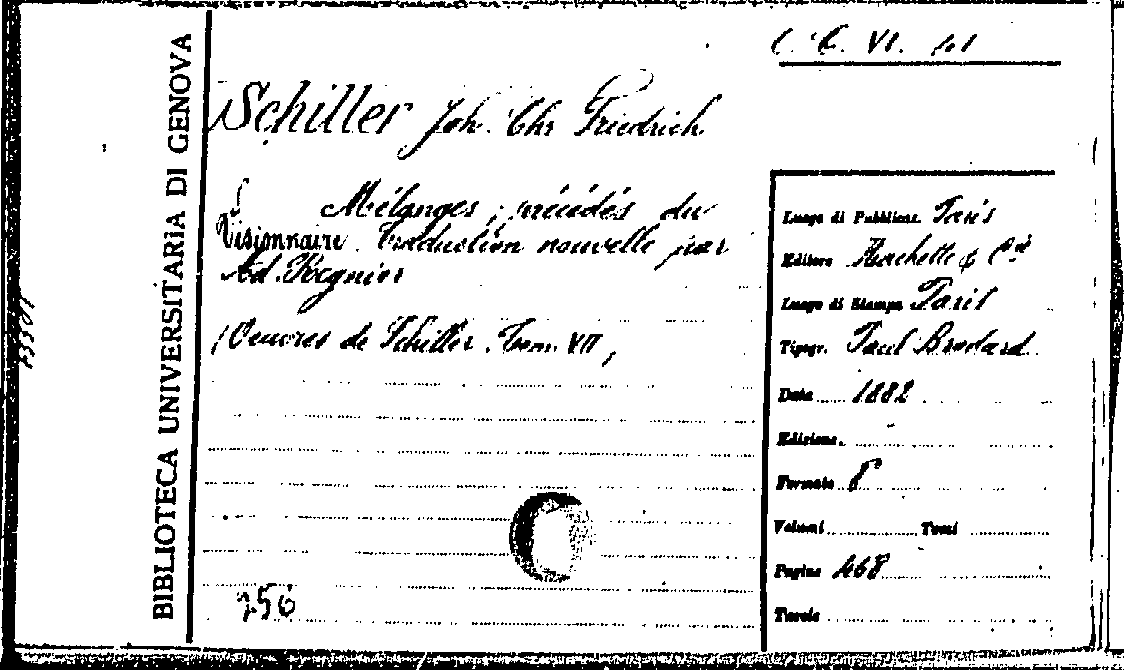 BIBLIOTECA UNIVERSITARIA DI GENOVA
C. C. VI. 41
Schiller Joh. Chr Friedrich
Mélanges, précédés du
Visionnaire. Traduction nouvelle par
Ad. Regnier
(Oeuvres de Schiller. Tom. VII)
256
Luogo di Pubblicaz. Paris
Editore Hachette & Cie
Luogo di Stampa Paris
Tipogr. Paul Brodard
Data 1882
Edizione.
Formato 8
Volumi Tomi
Pagine 468
Tavole